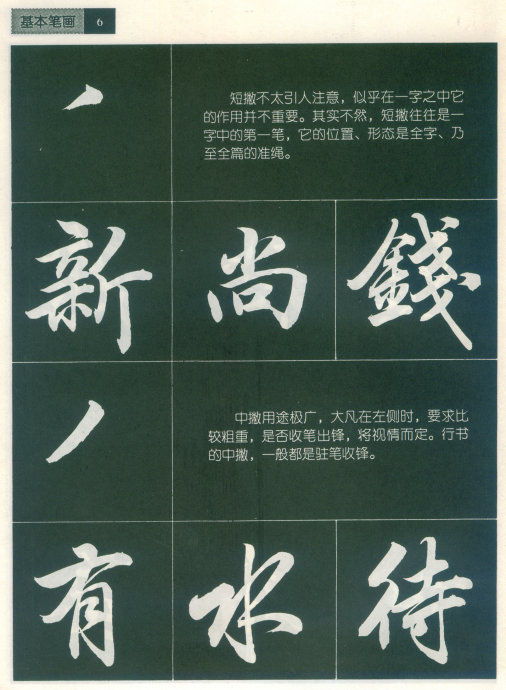 基本笔画 6
短撇不太引人注意，似乎在一字之中它
的作用并不重要。其实不然，短撇往往是一
字中的第一笔，它的位置、形态是全字、乃
至全篇的准绳。
新 尚 錢
中撇用途极广，大凡在左侧时，要求比
较粗重，是否收笔出锋，将视情而定。行书
的中撇，一般都是驻笔收锋。
有 水 待